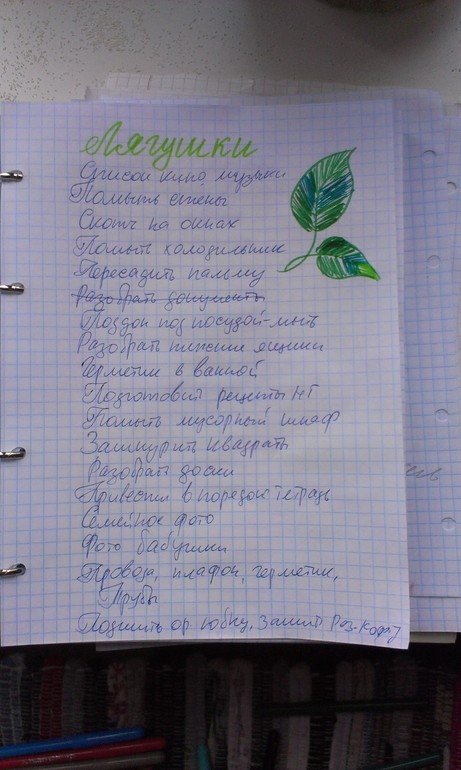 Лягушки
Список кино, музыки
Помыть стены
Скотч на окнах
Помыть холодильник
Пересадить пальму
Разобрать документы
Поддон под посудой-мыть
Разобрать нижние ящики
Герметик в ванной
Подготовит рецепты НГ
Помыть мусорный шкаф
Зашкурить квадраты
Разобрать доски
Привести в порядок тетрадь
Семейное фото
Фото бабушки
Провода, плафон, герметик,
Трубы
Подшить ор. юбку, Зашит Роз. Кофт